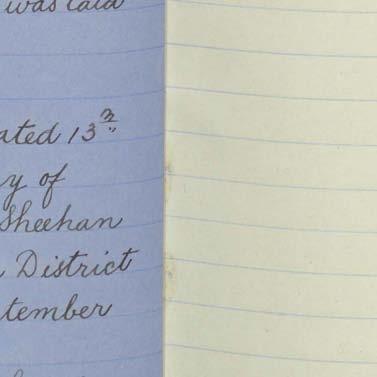 was laid
ated 13th
y of
Sheehan
District
tember